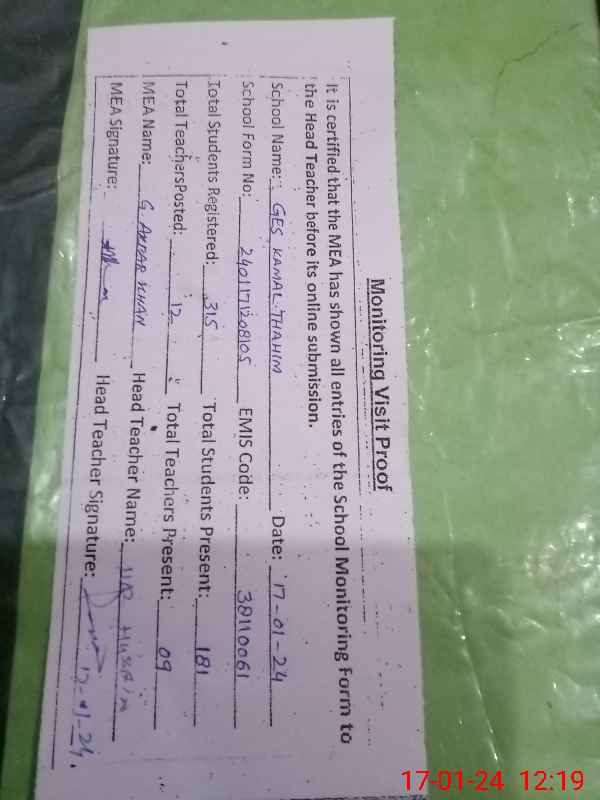 Monitoring Visit Proof
It is certified that the MEA has shown all entries of the School Monitoring Form to
the Head Teacher before its online submission.
School Name: GES KAMAL THAHIM Date: 17-01-24
School Form No: 2401171208105 EMIS Code: 38110061
Total Students Registered: 315 Total Students Present: 181
Total TeachersPosted: 12 Total Teachers Present: 09
MEA Name: G. AKBAR KHAN Head Teacher Name:
MEA Signature: Head Teacher Signature: 17-01-24.
17-01-24 12:19